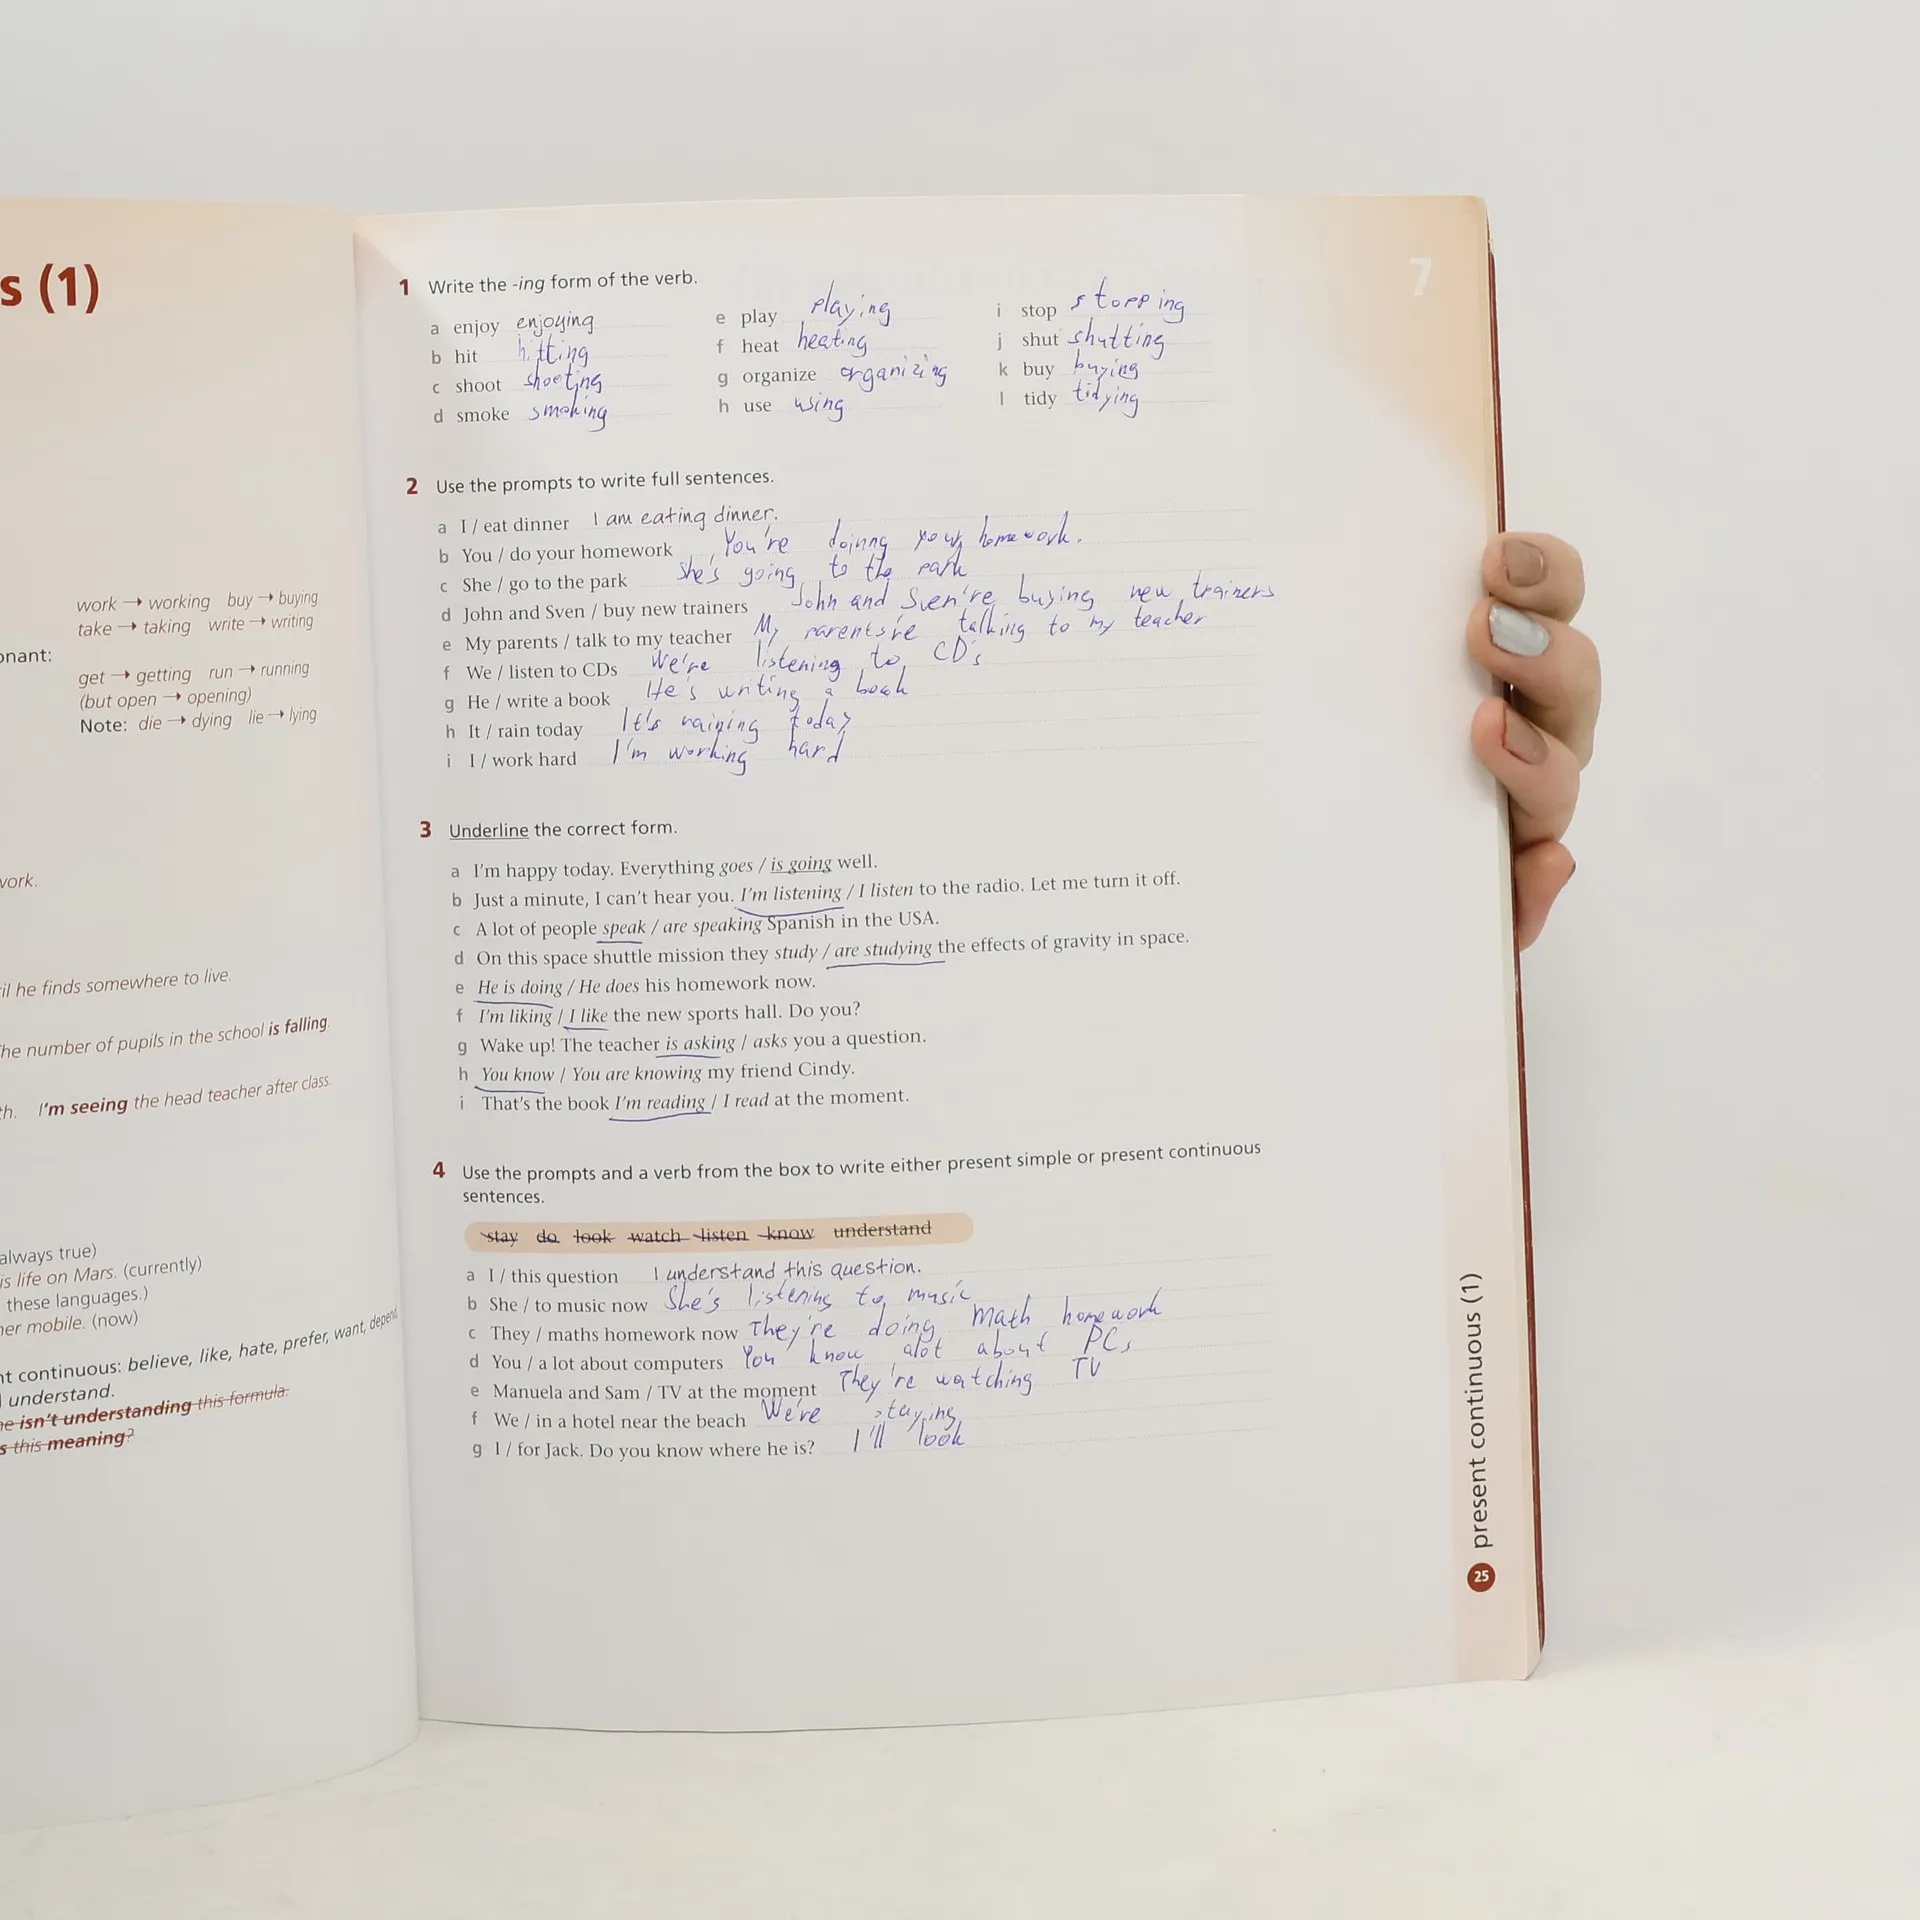 s (1)
work → working buy → buying
take → taking write → writing
onant:
get → getting run → running
(but open → opening)
Note: die → dying lie → lying
work.
il he finds somewhere to live.
he number of pupils in the school is falling.
th. I'm seeing the head teacher after class.
always true)
is life on Mars. (currently)
these languages.)
her mobile. (now)
nt continuous: believe, like, hate, prefer, want, depend,
understand.
he isn't understanding this formula.
s this meaning?
7
1 Write the -ing form of the verb.
a enjoy enjoying e play playing i stop stopping
b hit hitting f heat heating j shut shutting
c shoot shooting g organize organizing k buy buying
d smoke smoking h use using l tidy tidying
2 Use the prompts to write full sentences.
a I / eat dinner I am eating dinner.
b You / do your homework You're doinng your homework.
c She / go to the park She's going to the park
d John and Sven / buy new trainers John and Sven're buying new trainers
e My parents / talk to my teacher My parents're talking to my teacher
f We / listen to CDs We're listening to CD's
g He / write a book He's writing a book
h It / rain today It's raining today
i I / work hard I'm working hard
3 Underline the correct form.
a I'm happy today. Everything goes / is going well.
b Just a minute, I can't hear you. I'm listening / I listen to the radio. Let me turn it off.
c A lot of people speak / are speaking Spanish in the USA.
d On this space shuttle mission they study / are studying the effects of gravity in space.
e He is doing / He does his homework now.
f I'm liking / I like the new sports hall. Do you?
g Wake up! The teacher is asking / asks you a question.
h You know / You are knowing my friend Cindy.
i That's the book I'm reading / I read at the moment.
4 Use the prompts and a verb from the box to write either present simple or present continuous
sentences.
stay do look watch listen know understand
a I / this question I understand this question.
b She / to music now She's listening to music
c They / maths homework now They're doing math homework
d You / a lot about computers You know alot about PCs
e Manuela and Sam / TV at the moment They're watching TV
f We / in a hotel near the beach We're staying
g I / for Jack. Do you know where he is? I'll look
present continuous (1)
25